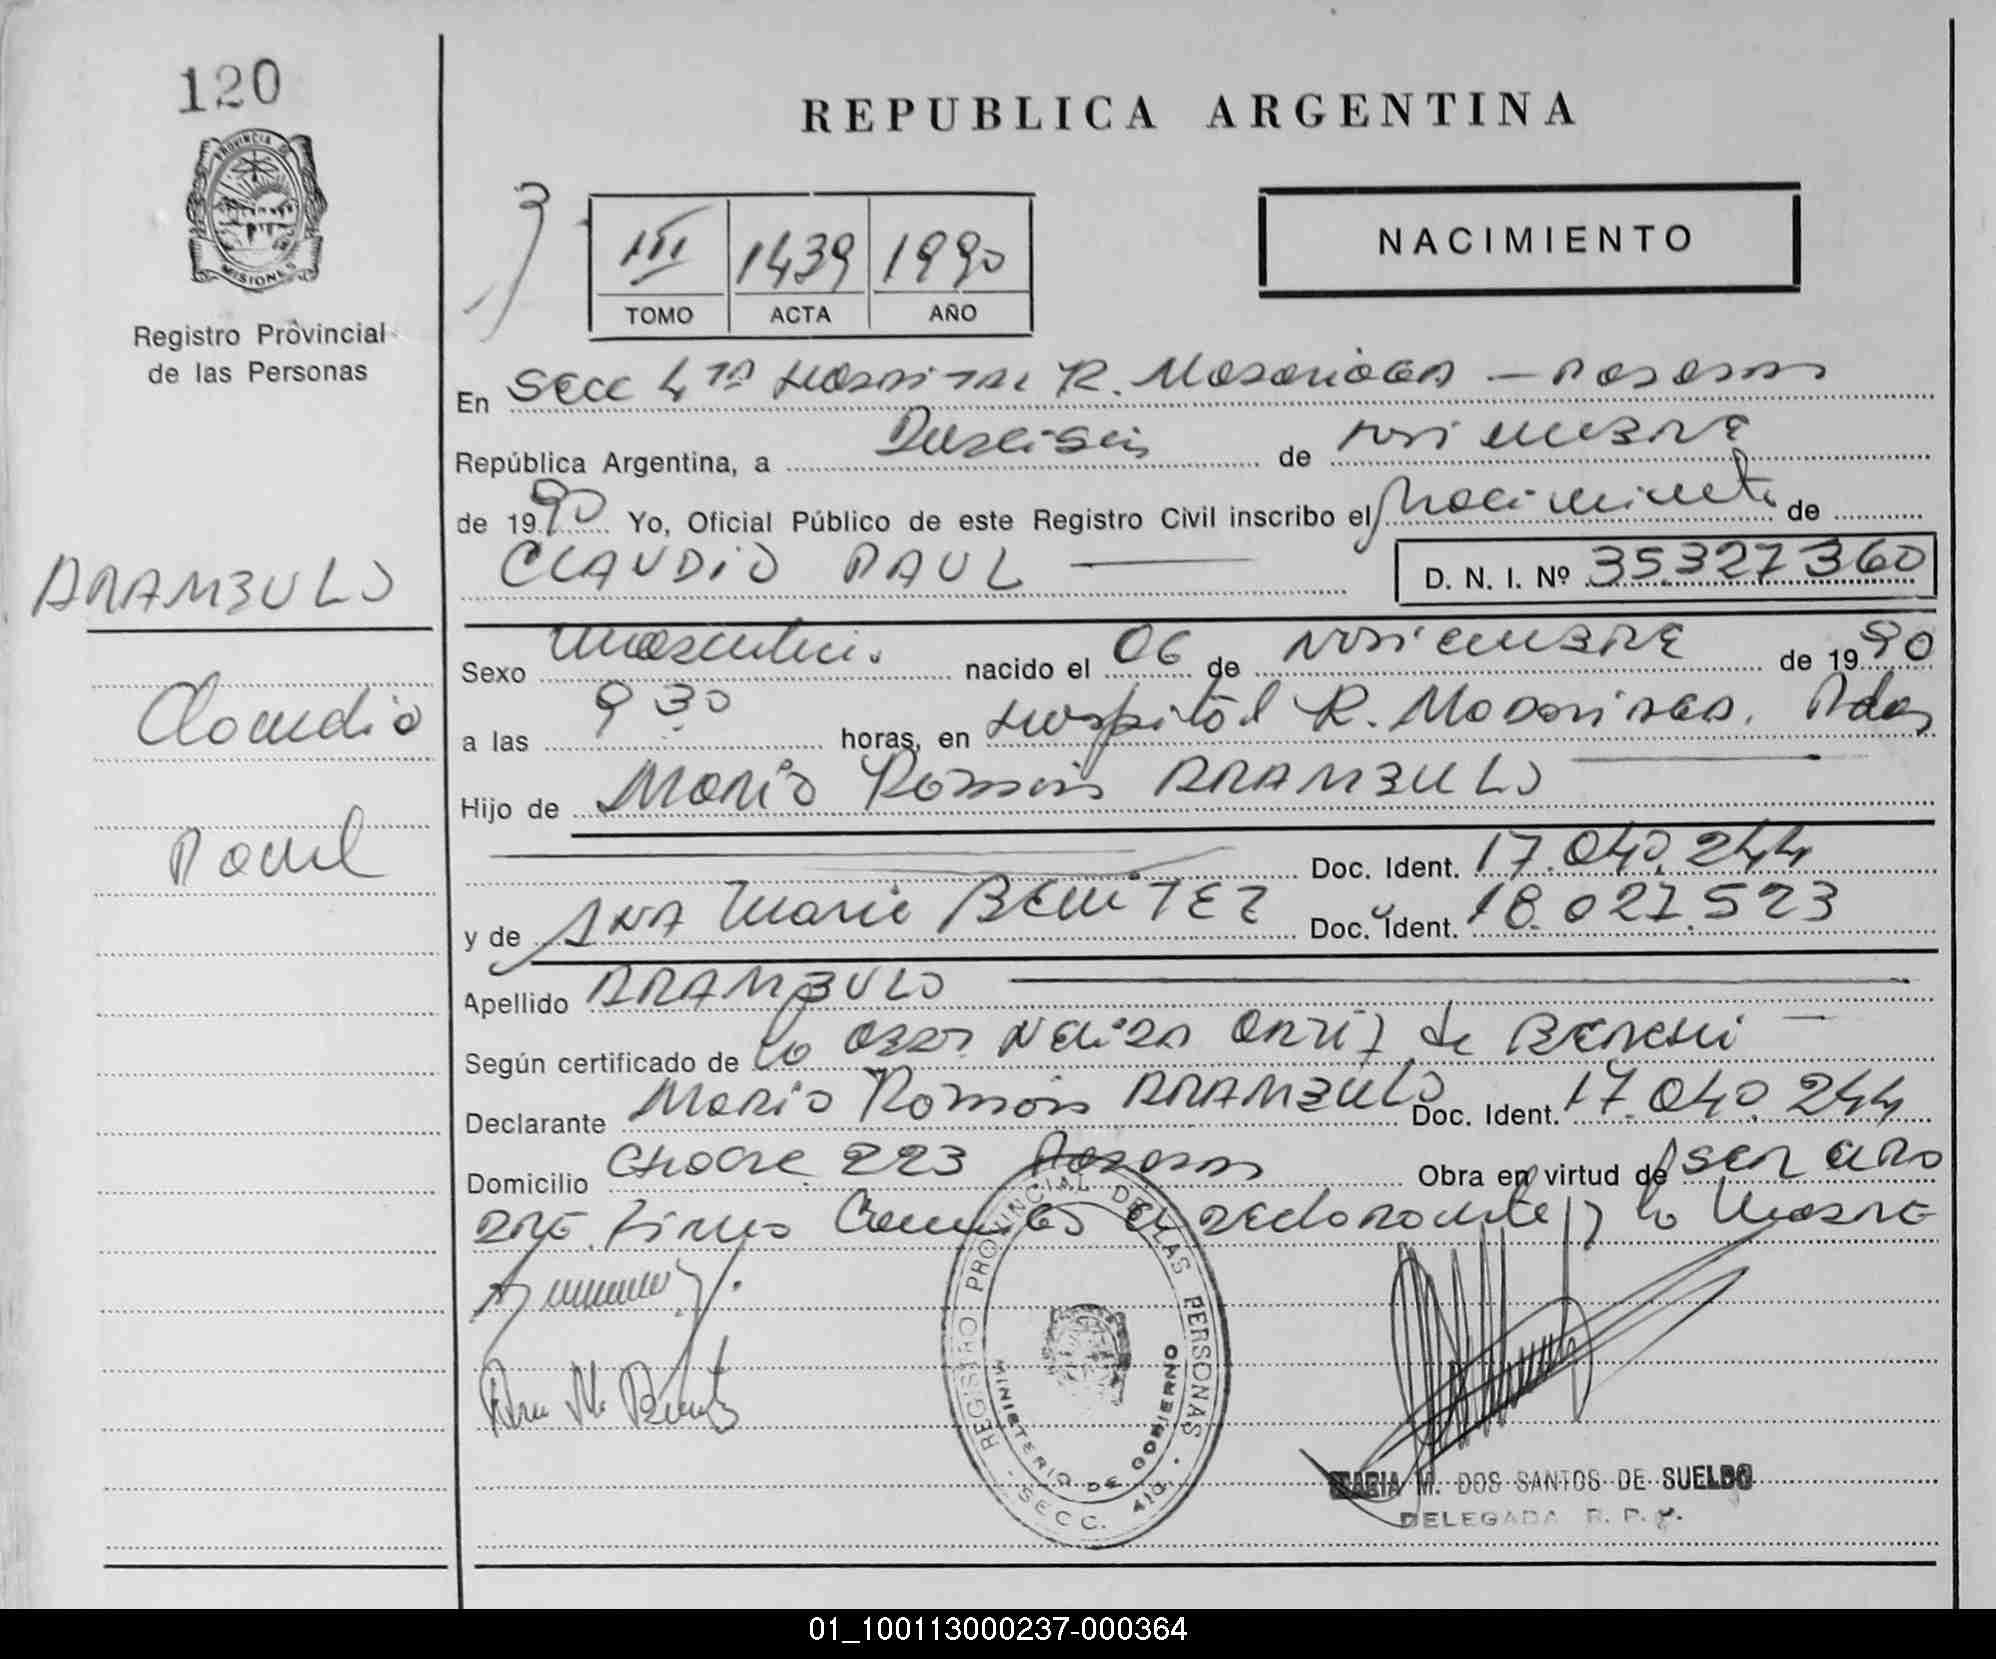 120
PROVINCIA DE
MISIONES
Registro Provincial
de las Personas
ARAMBULO
Claudio
Paul
REPUBLICA ARGENTINA
III 1439 1990
TOMO ACTA AÑO
NACIMIENTO
En Secc 4ta Hospital R. Madariaga - Posadas
República Argentina, a Dieciseis de noviembre
de 1990 Yo, Oficial Público de este Registro Civil inscribo el Nacimiento de
CLAUDIO PAUL
D. N. I. Nº 35327360
Sexo Masculino. nacido el 06 de Noviembre de 1990
a las 9 30 horas, en Hospital R. Madariaga. Pdas
Hijo de Mario Ramón ARAMBULO
Doc. Ident. 17.040.244
y de ANA Maria BENITEZ Doc. Ident. 18.027.523
Apellido ARAMBULO
Según certificado de la Obst. Nelida Ortiz de
Declarante Mario Ramón ARAMBULO Doc. Ident. 17.040.244
Domicilio Chacra 223 Posadas Obra en virtud de ser el Pa
dre. Firma El declarante y la Madre
Ana M. Benitez
REGISTRO PROVINCIAL DE LAS PERSONAS
MINISTERIO DE GOBIERNO
SECC. 4ta.
MARIA M. DOS SANTOS DE SUELDO
DELEGADA R. P. P.
01_100113000237-000364